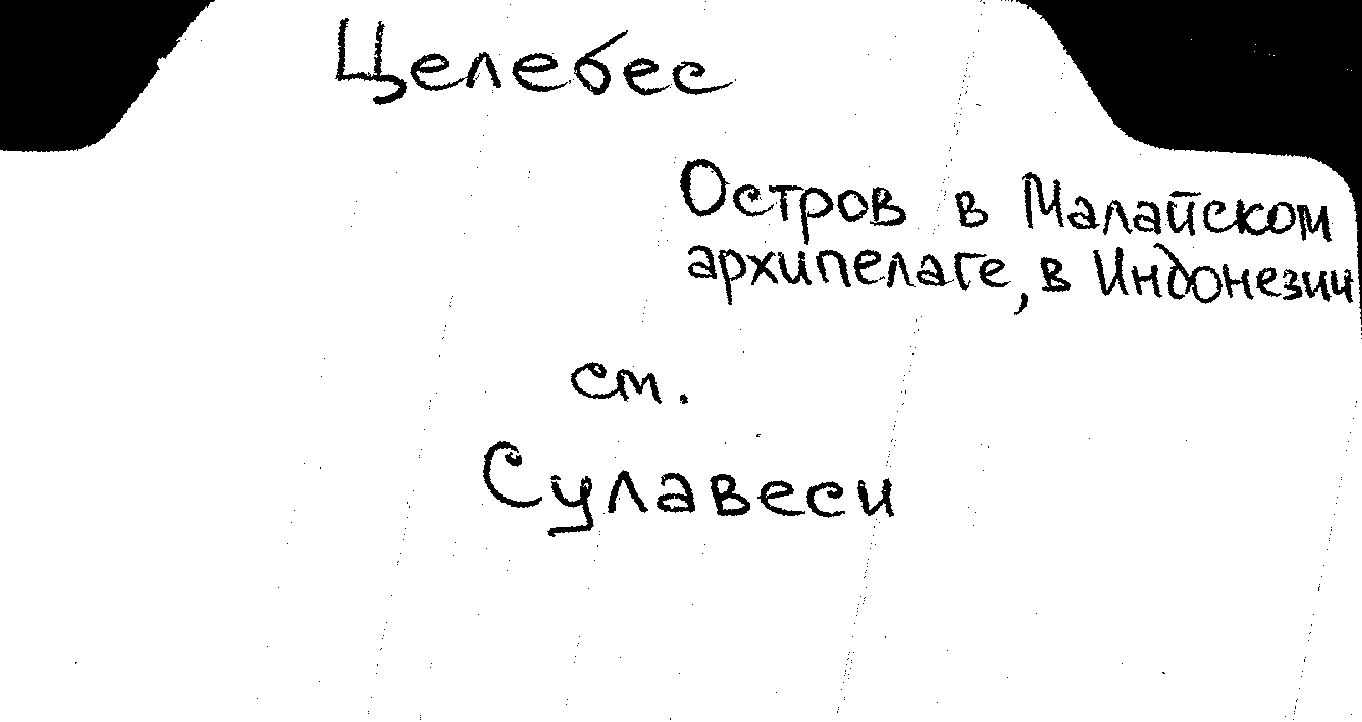 Целебес
Остров в Малайском
архипелаге, в Индонезии
см.
Сулавеси